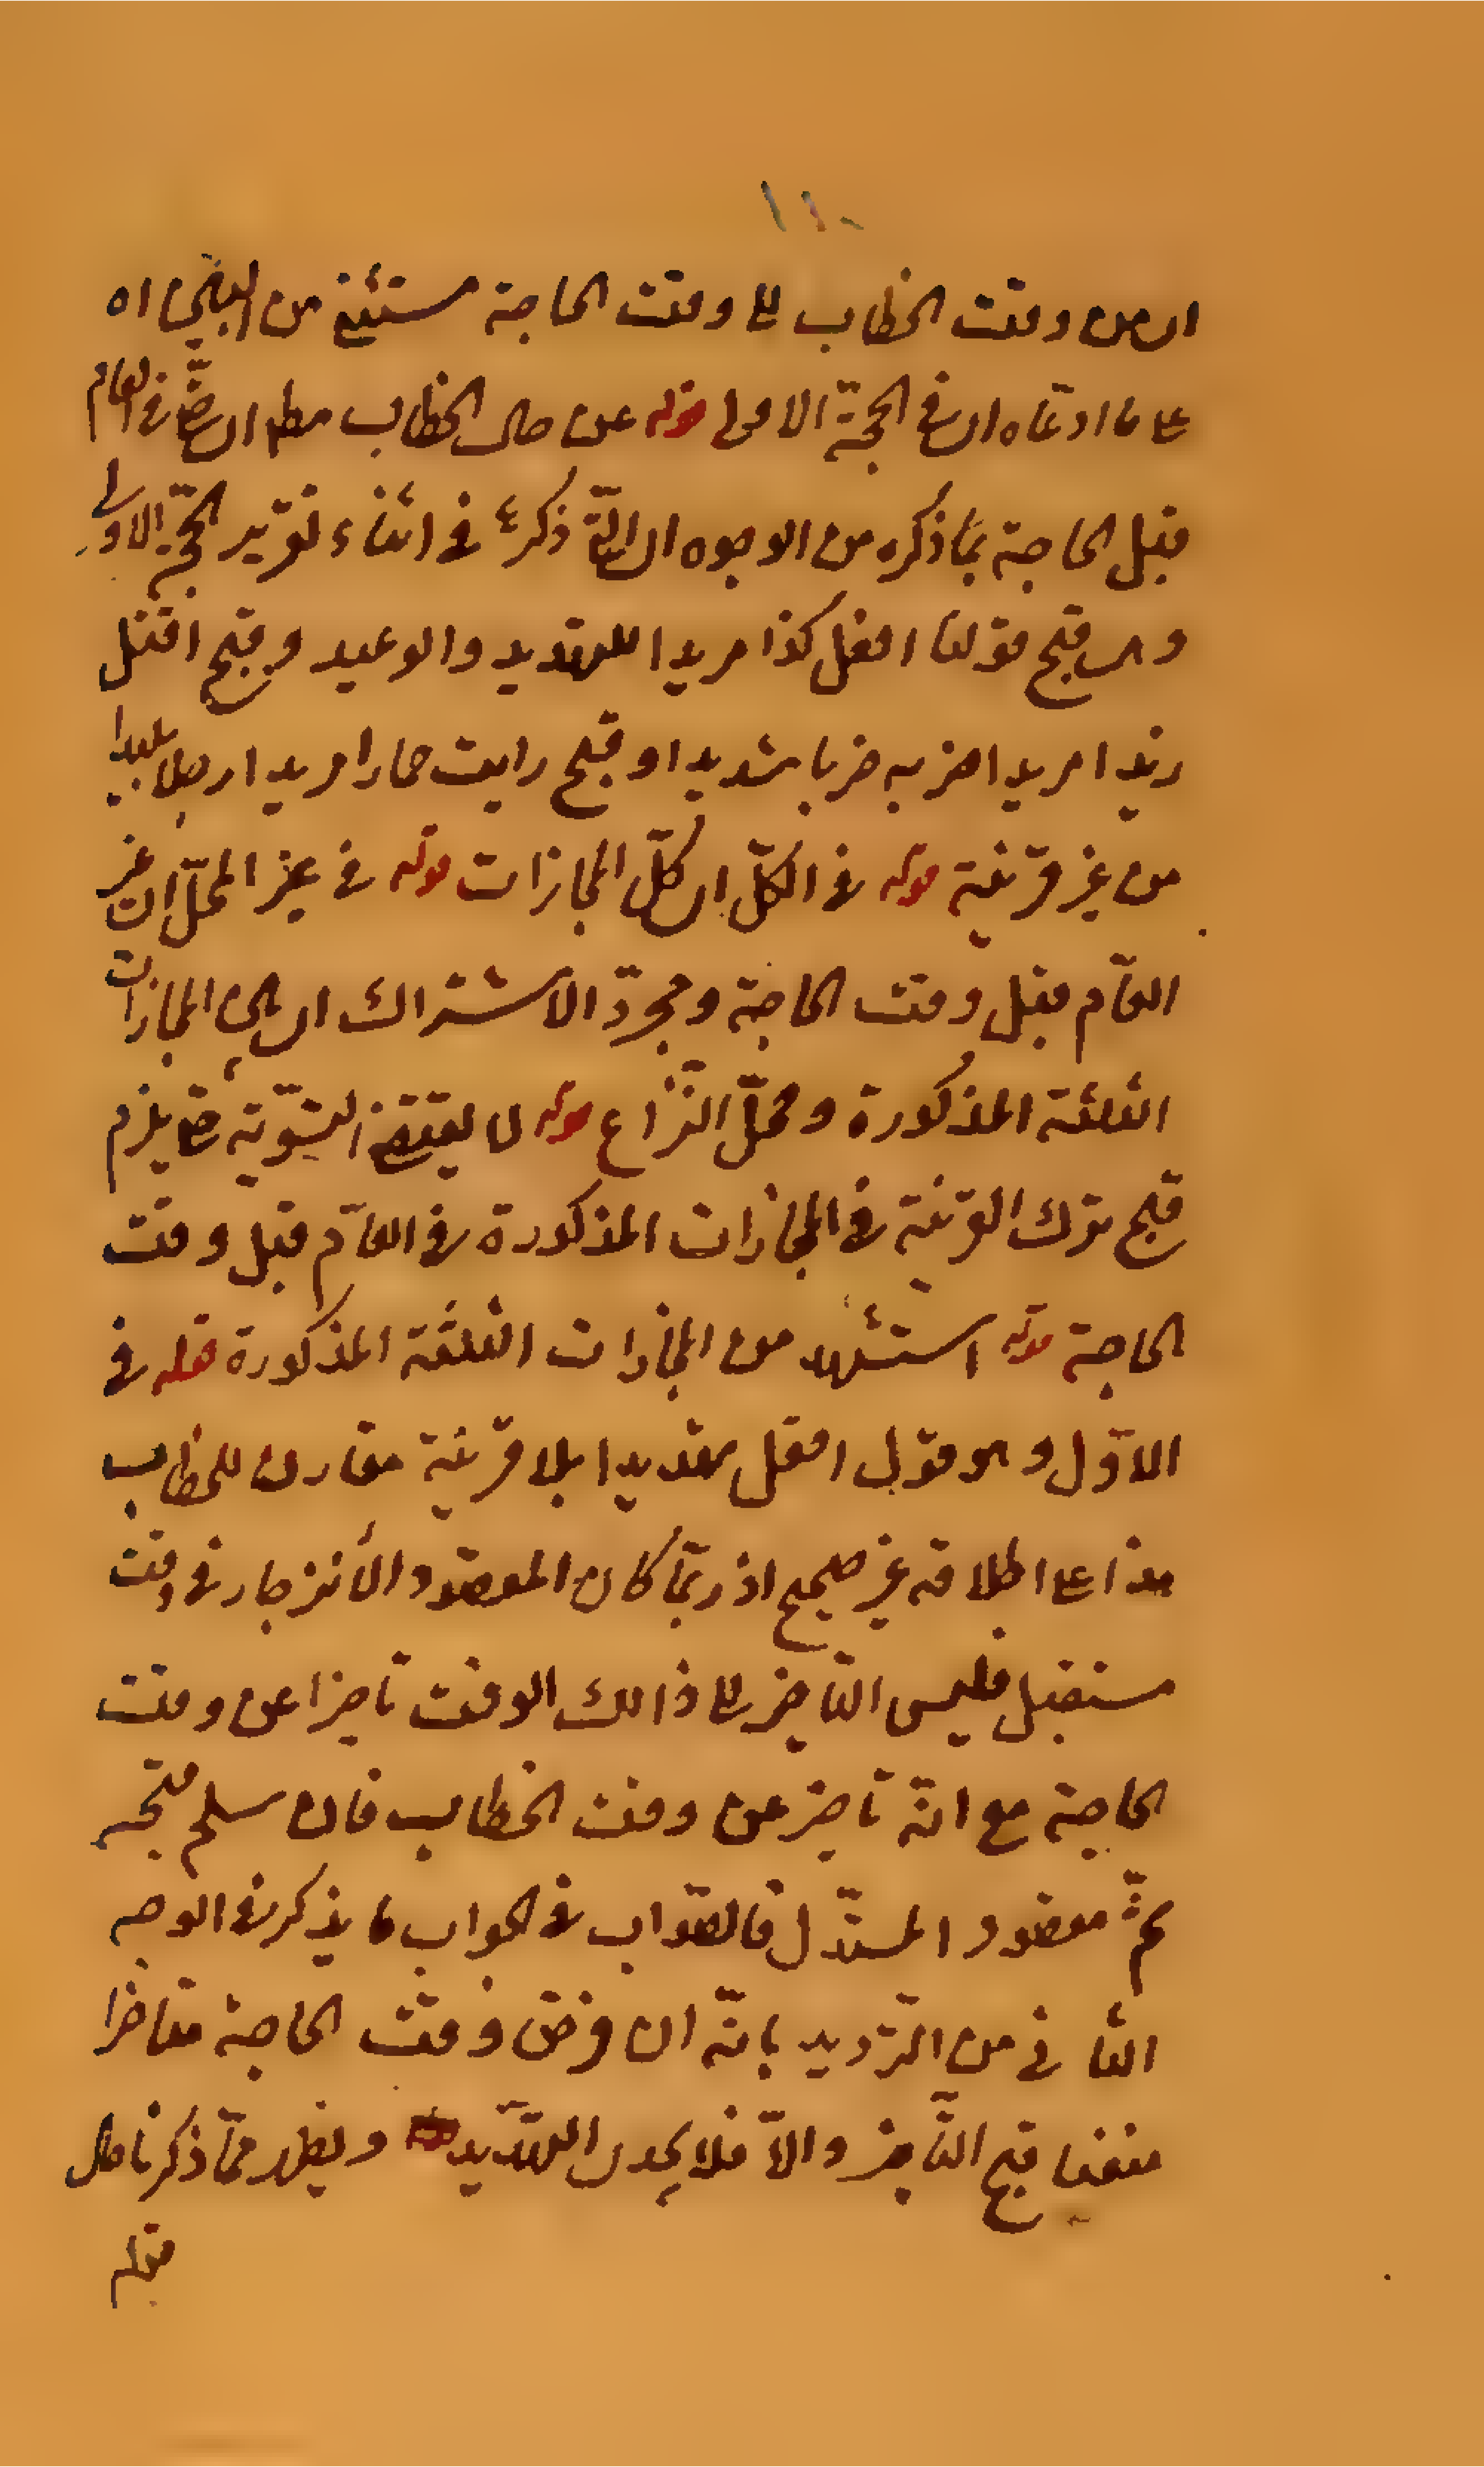 ١١٠
اى من وقت الخطاب الى وقت الحاجة مستثنى من
على ما ادعّاه اى فى الحجّة الاولى قوله عن حال الخطاب مطلقا اى حتّى فى العام
قبل الحاجة بما ذكره من الوجوه اى الّتى ذكرت فى اثناء تقرير الحجّة الاولى
وهى قبح قولنا افعل كذا مريدا للتهديد والوعيد وقبح اقتل
زيدا مريدا اضربه ضربا شديدا وقبح رايت حمارا مريدا رجلا بليدا
من غير قرينة قوله فى الكلّ اى كلّ المجازات قوله فى غير المحلّ اى غير
العامّ قبل وقت الحاجة ومجرّد الاشتراك اى بين المجازات
الثلثة المذكورة ومحلّ النّزاع قوله لا يقتضى التسوّية حتى يلزم
قبح ترك القرينة فى المجازات المذكورة فى العامّ قبل وقت
الحاجة قوله استشهد من المجازات الثلثة المذكورة قوله فى
الاوّل وهو قول افعل تهديدا بلا قرينة مقارن للخطاب
هذا على اطلاقه غير صحيح اذ ربّما كان المقصود الأنزجار فى وقت
مستقبل فليس التّاخير الى ذالك الوقت تاخيرا عن وقت
الحاجة مع انّه تاخير عن وقت الخطاب فان سلم قبحه
ثمّ مقصود المستدّل فالصّواب فى الجواب ما يذكر فى الوجه
الثّانى من التّرديد بانّه ان فرض وقت الحاجة متاخرا
منعنا قبح التّاخير والاّ فلا يجدى التهدّيد ويظهر ممّا ذكرنا حال
قوله